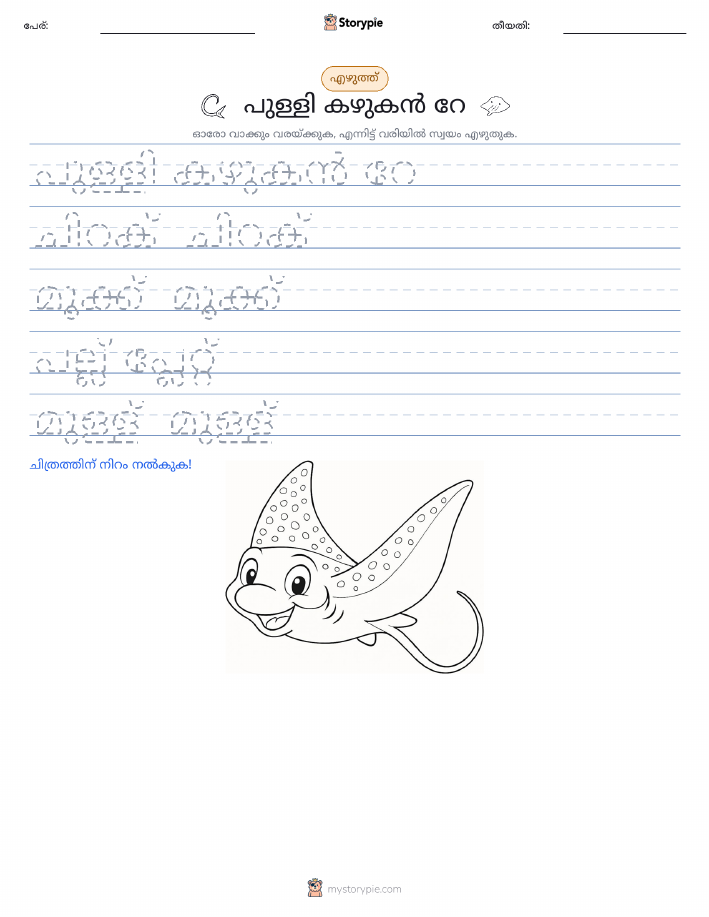 പേര്:
Storypie
തീയതി:
എഴുത്ത്
പുള്ളി കഴുകൻ റേ
ഓരോ വാക്കും വരയ്ക്കുക, എന്നിട്ട് വരിയിൽ സ്വയം എഴുതുക.
പുള്ളി കഴുകൻ റേ
ചിറക് ചിറക്
മൂക്ക് മൂക്ക്
പല്ല് പ്ലേറ്റ്
മുള്ള് മുള്ള്
ചിത്രത്തിന് നിറം നൽകുക!
mystorypie.com